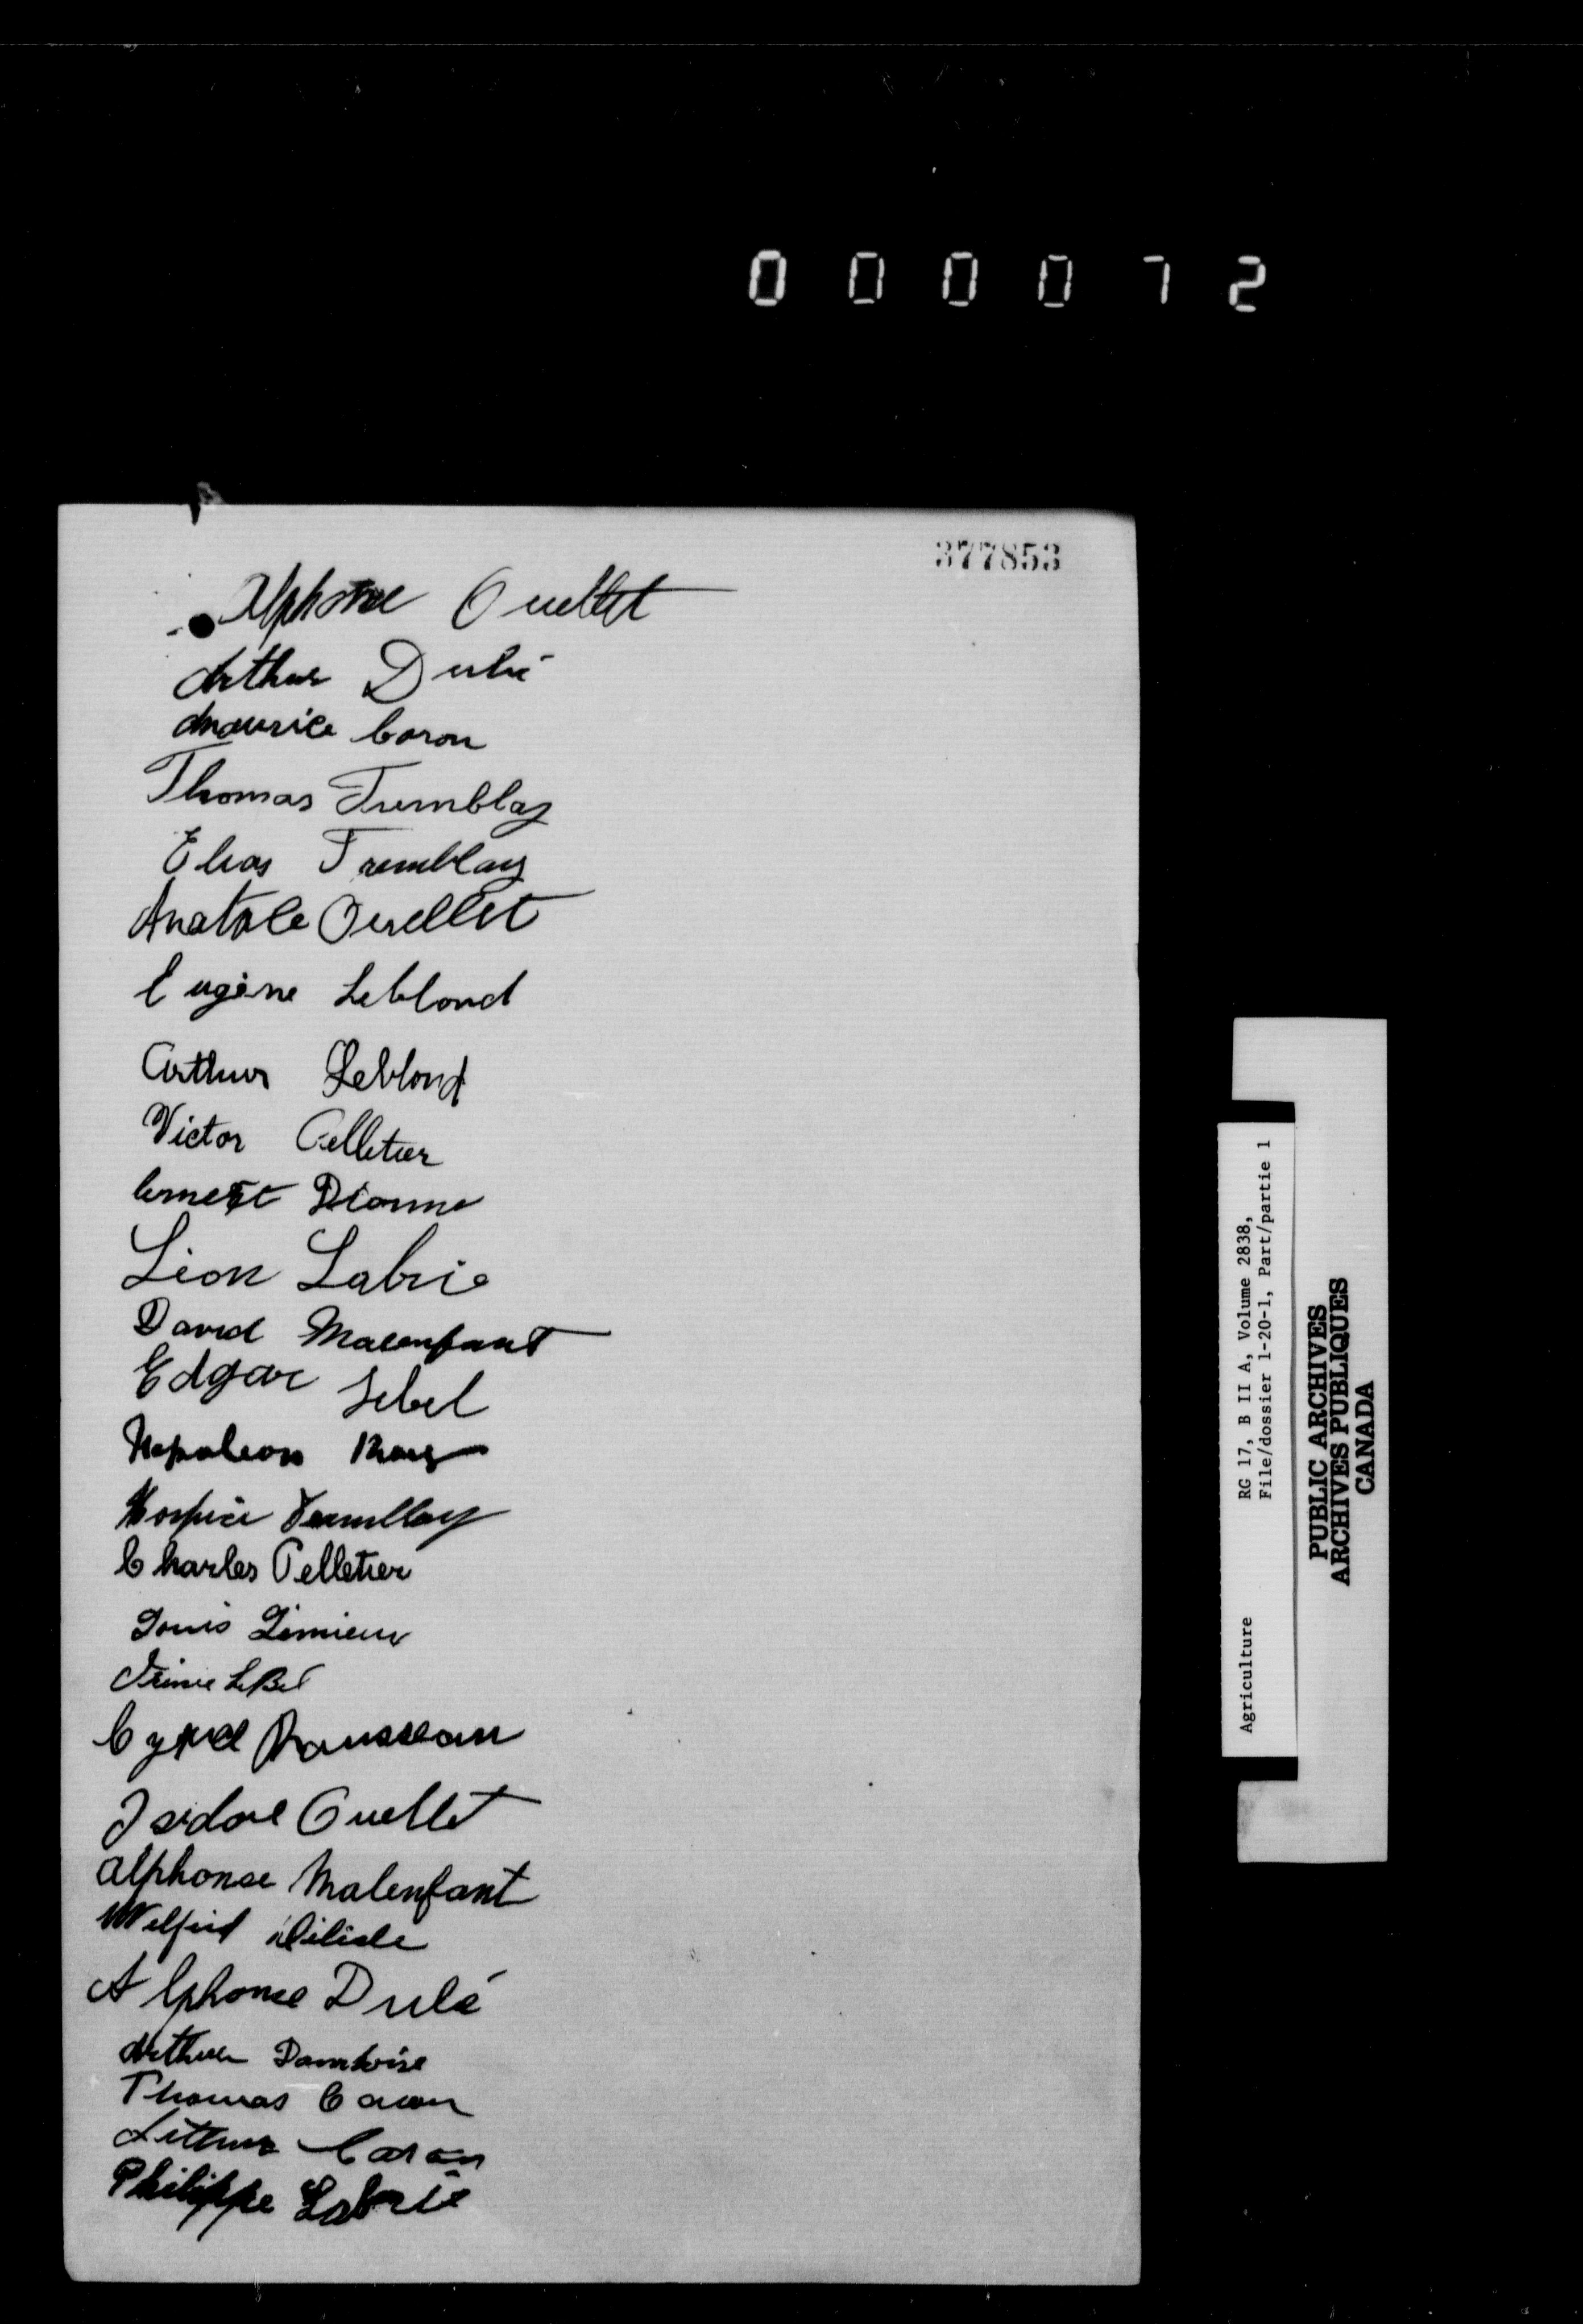 000072
377853
Alphonse Ouellet
Arthur Dubé
Maurice Caron
Thomas Tremblay
Elias Tremblay
Anatole Ouellet
Eugène Leblond
Arthur Leblond
Victor Pelletier
Ernest Dionne
Léon Labrie
David Malenfant
Edgar Lebel
Napoleon Roy
Hospice Tremblay
Charles Pelletier
Louis Lémieux
LeBel
Rousseau
Isidore Ouellet
Alphonse Malenfant
Wilfrid Délisle
Alphonse Dubé
Arthur Damboise
Thomas Caron
Arthur Caron
Philippe Labrie
Agriculture RG 17, B II A, Volume 2838,
File/dossier 1-20-1, Part/partie 1
PUBLIC ARCHIVES
ARCHIVES PUBLIQUES
CANADA